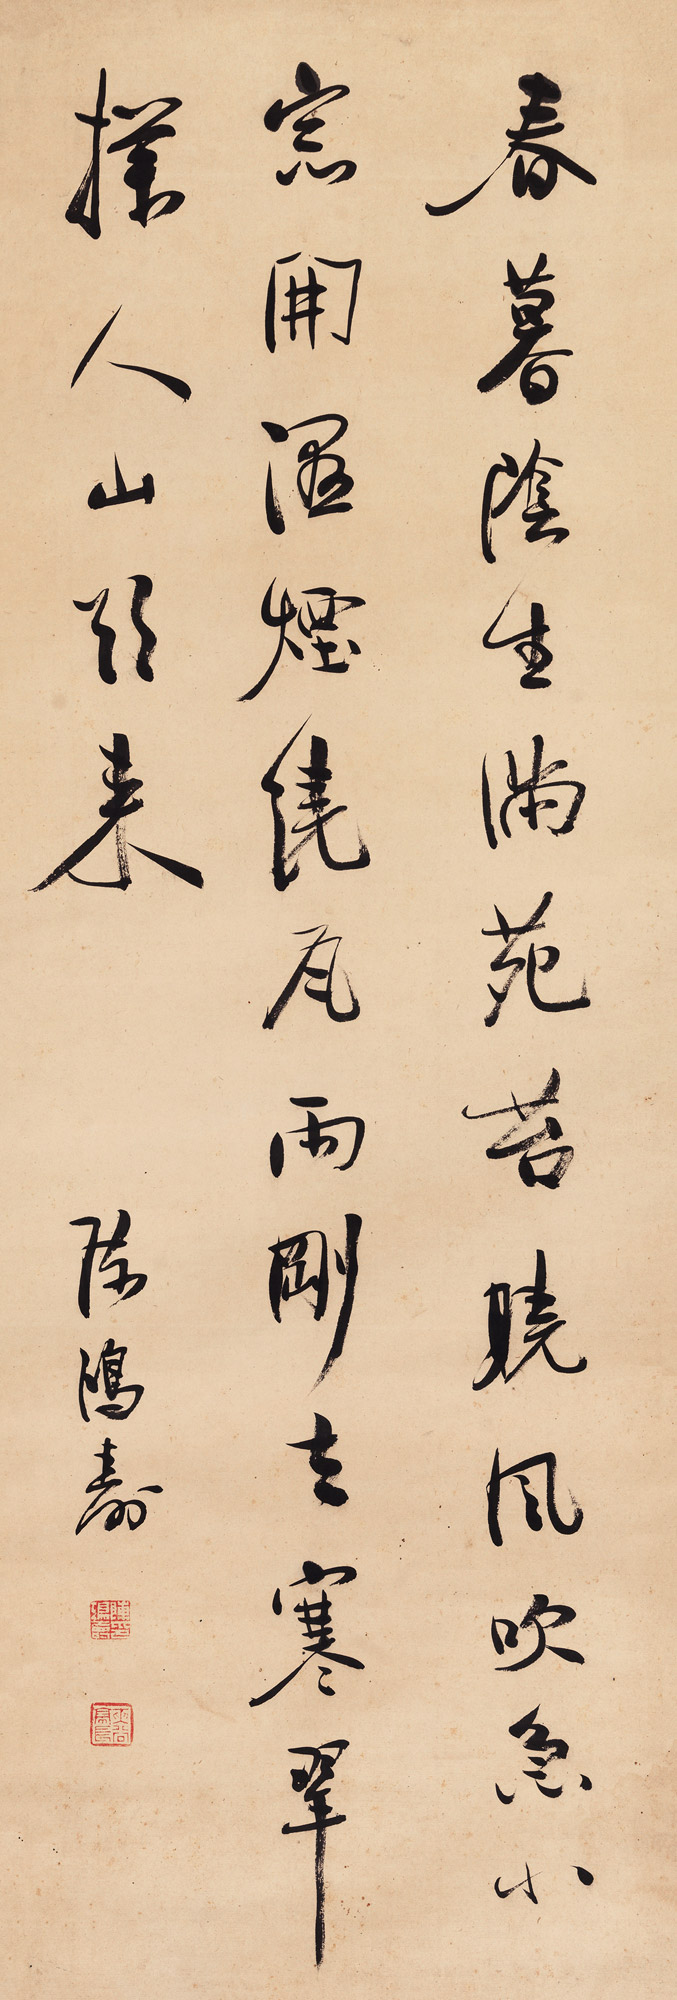 春暮陰生滿苑苔曉風吹急小
窓開溼煙繞瓦雨剛去寒翠
撲人山欲來
陳鴻壽